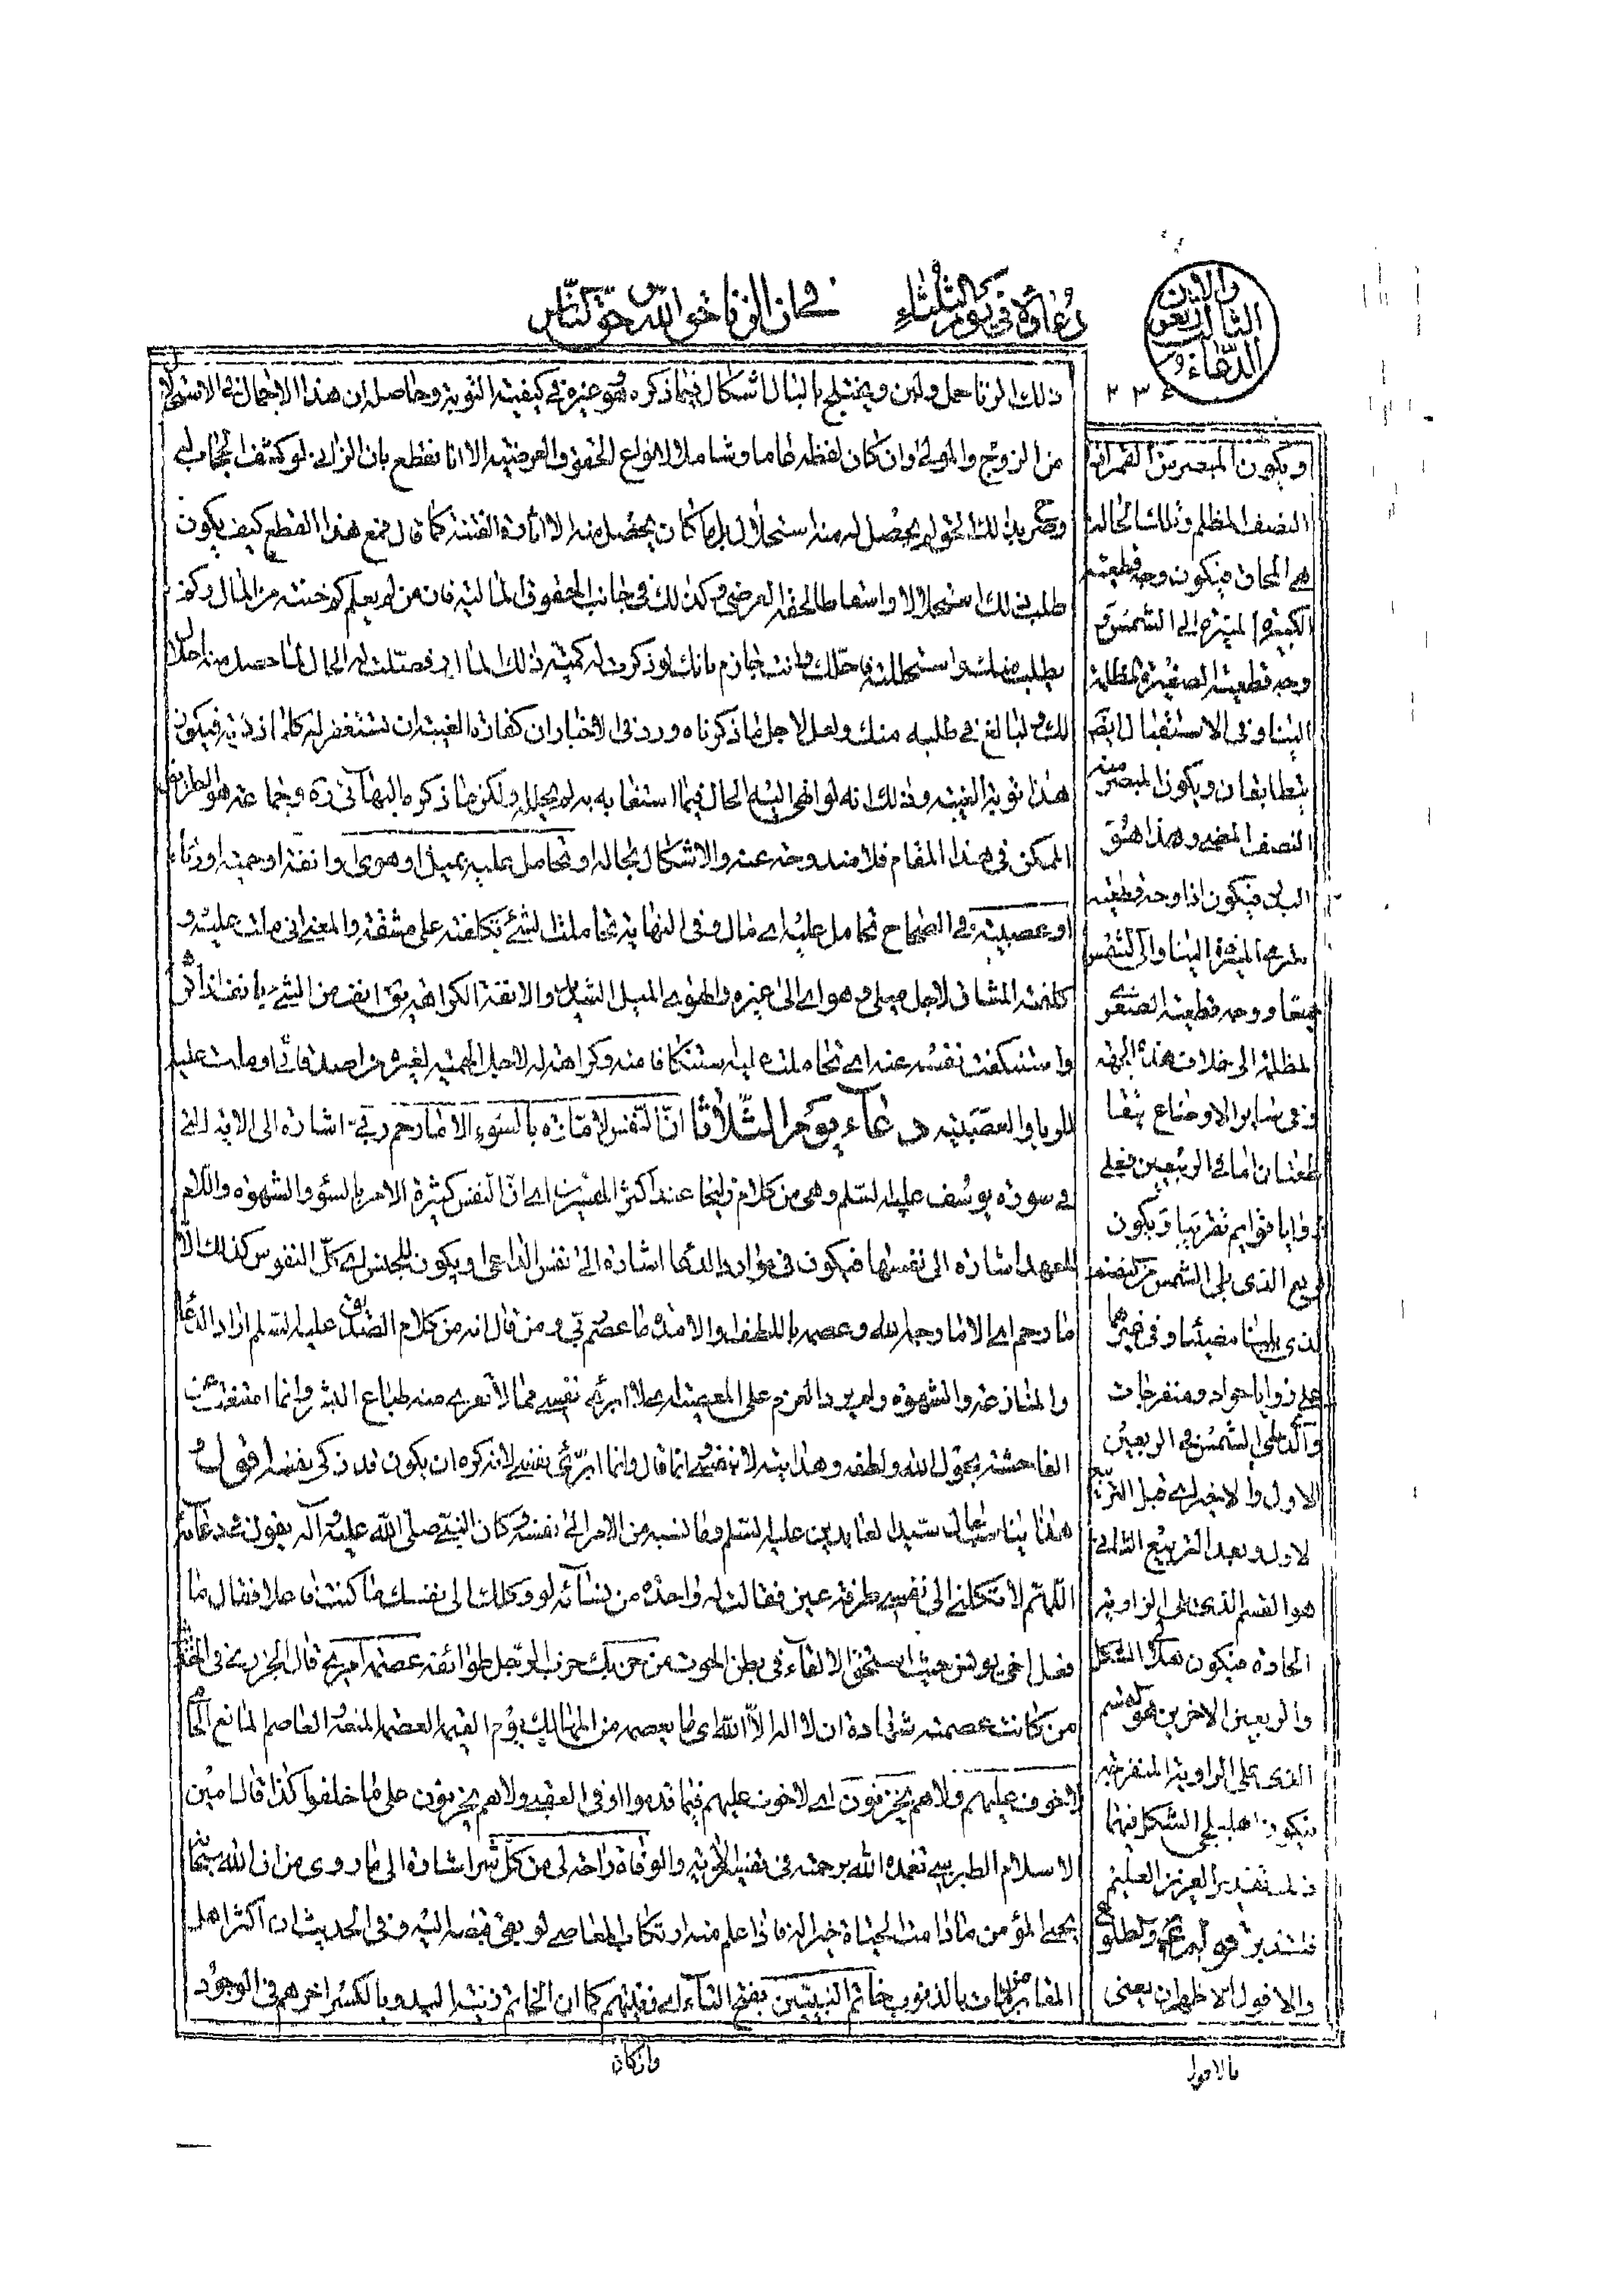 دعاؤه في يوم الثلثاء
في ان الزنا حق الله حق الناس
الدعاء الثالث والاربعون
٢٣٤
ذلك الزنا حمل ولبن ويختلج بالبال اشكال فيما ذكره هو وغيره في كيفية التوبة وحاصله ان هذا الاجمال في الاستحلال
من الزوج والمولى وان كان لفظه عاما وشاملا لانواع الحقوق والعرضية الا انا نقطع بان الزاني لو كشف الحجاب
وصرح بذلك الحق لم يحصل له منه استحلال بل ما كان يحصل منه الا اثارة الفتنة كما قال فمع هذا القطع كيف يكون
طلب ذلك استحلالا واسقاطا لحقه العرضي وكذلك في جانب الحقوق المالية فان من لم يعلم كم خنته من المال
يطلب منك واستحللته فاحلك وانت جازم بانك لو ذكرت له كمية ذلك المال او فصلت له الحال لما حصل منه احلال
لك ولبالغ في طلبه منك ولعل لاجل ما ذكرناه ورد في الاخبار ان كفارة الغيبة ان تستغفر له كلما ذكرته فيكون
هذا توبة الغيبة وذلك انه لو انهى اليه الحال فيما استغابه به لم يحلله ولكن ما ذكره البهائي ره وجماعة هو الطريق
الممكن في هذا المقام فلا مندوحة عنه والاشكال بحاله او تحامل عليه بميل او هوى او انفة او حمية او رياء
او عصبية في الصحاح تحامل عليه اي مال وفي النهاية تحاملت الشئ تكلفته على مشقة والمعنى اني ملت عليه و
كلفته المشاق لاجل ميلي وهواي الى غيره والهوى الميل والانفة الكراهة يق انف من الشئ يانف اذا كره
واستنكفت نفسه عنه اي تحاملت عليه استنكافا منه وكراهة له لاجل الحمية لغيره من اصدقائي او ملت عليه
للريا والعصبية دعاء يوم الثلاثا ان النفس لامارة بالسوء الا ما رحم ربي اشارة الى الاية التي
في سورة يوسف عليه السلم وهي من كلام زليخا عند اكثر المفسرين اي ان النفس كثيرة الامر بالسؤ والشهوة واللام
للعهد اشارة الى نفسها فيكون في موارد الدعا اشارة الى نفس الداعي او يكون للجنس اي كل النفوس كذلك الا
ما رحم اي الا ما رحمه الله وعصمه باللطف والا مدة ما عصم ربي ومن قال انه من كلام الصديق عليه السلم اراد الدعا
والمنازعة والشهوة ولم يرد العزم على المعصية اي لا ابرئ نفسي مما لا تعرى منه طباع البشر وانما امتنعت عن
الفاحشة بحول الله ولطفه وهدايته لا بنفسي وانما قال وانما ابرئ نفسي لانه كره ان يكون قد زكى نفسه اقول
هذا يناسب حال سيد العابدين عليه السلم وما نسبه من الامر الى نفسه وكان النبي صلى الله عليه وآله يقول في دعائه
اللهم لا تكلني الى نفسي طرفة عين فقالت له واحدة من نسائه لو وكلك الى نفسك ما كنت فاعلا فقال ما
فعل اخي يونس حيث استحق الالقاء في بطن الحوت من حزبك حزب الرجل طوائفه عصمة امري قال الجزري في الحديث
من كانت عصمته شهادة ان لا اله الا الله اي ما يعصمه من المهالك يوم القيمة العصمة المنعة والعاصم المانع الحامي
لا خوف عليهم ولا هم يحزنون اي لا خوف عليهم فيما قدموا او في العقبى ولا هم يحزنون على ما خلفوا كذا قال امين
الاسلام الطبرسي تغمده الله برحمته في تفسير الاية والوفاة راحة لي من كل شر اشارة الى ما روي من ان الله سبحانه
يحيي المؤمن ما دامت الحياة خيرا له فاذا علم منه ارتكاب المعاصي لو بقي قبضه اليه وفي الحديث ان اكثر اهل
المقابر من مات بالذنوب خاتم النبيين بفتح التاء اي زينتهم كما ان الخاتم زينة اليد وبالكسر اخرهم في الوجود
وان كان
ويكون المبصر من القمر انه
النصف المظلم وتلك الحالة
هي المحاق فيكون وجه قطعته
الكبيرة المنيرة الى الشمس و
وجه قطعته الصغيرة المظلمة
الينا وفي الاستقبال ايضا
يتطابقان ويكون المبصر منه
النصف المضيء وهذا هو
البدر فيكون اذا وجه قطعته
المنيرة الينا والى الشمس
معا ووجه قطعته الصغرى
المظلمة الى خلاف هذه الجهة
وفي ساير الاوضاع يتقا
طعان اما في الربيعين فعلى
زوايا قوايم تقريبا ويكون
الربع الذي يلي الشمس من النصف
الذي يلينا مضيئا وفي غيرهما
على زوايا حواد ومنفرجات
والذي يلي الشمس في الربعين
الاول والاخير اي قبل التربيع
الاول وبعد التربيع الثاني
هو القسم الذي يلي الزاوية
الحادة فيكون هلالي الشكل
والربعين الاخرين هو القسم
الذي يلي الزاوية المنفرجة
فيكون اهليلجي الشكل فيهما
ذلك تقدير العزيز العليم
والطلوع
والافول الاظهر ان يعنى
بالافول